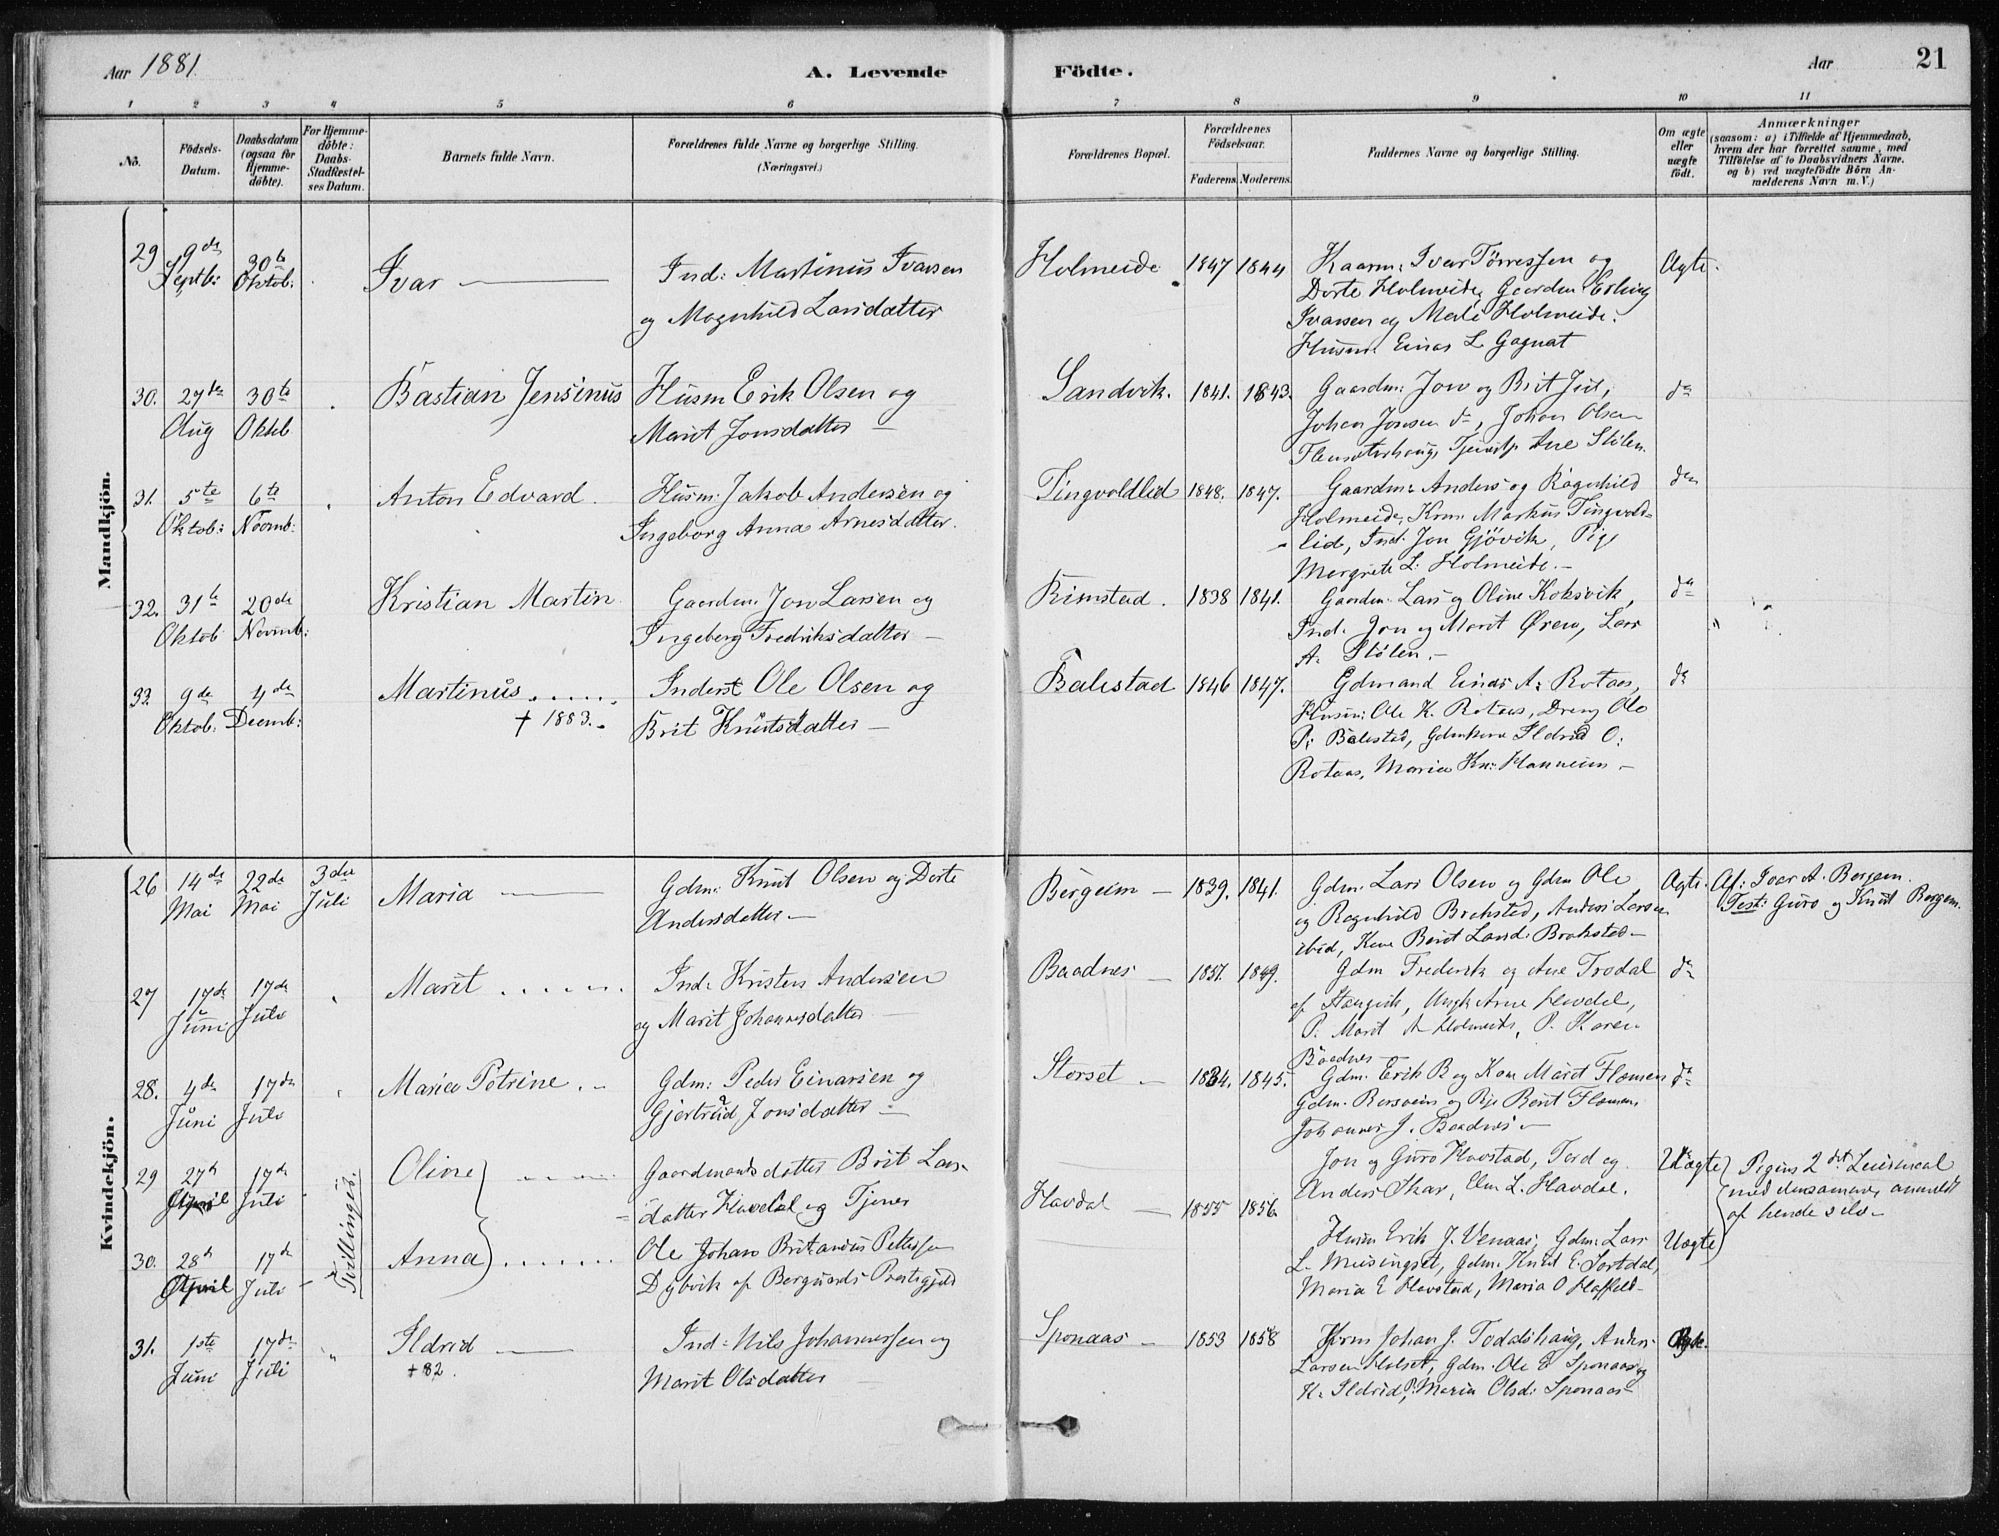 Aar 1881.
A. Levende
Födte.
Aar
21
1 2 3 4 5 6 7 8 9 10 11
No.
Födsels-
Datum.
Daabsdatum
(ogsaa för
Hjemme-
döbte).
For Hjemme-
döbte:
Daabs-
Stadfæstel-
ses Datum.
Barnets fulde Navn.
Forældrenes fulde Navne og borgerlige Stilling.
(Næringsvei.)
Forældrenes Bopæl.
Forældrenes
Födselsaar.
Faderens. Moderens.
Faddernes Navne og borgerlige Stilling.
Om ægte
eller
uægte
födt.
Anmærkninger
(saasom: a) i Tilfælde af Hjemmedaab,
hvem der har forrettet samme, med
Tilföielse af to Daabsvidners Navne.
og b) ved uægtefödte Börn An-
melderens Navn m. V.)
Mandkjön.
29 9de Septb: 30te Oktob: Ivar
Ind: Martinus Ivarsen
og Magnhild Larsdatter
Holmeide 1847 1844
Kaarm: Iver Tørressen og
Dorte Holmeide, Gaardm: Erling
Ivarsen og Holmeide.
Husm: Einar L. Gagnat
Ægte.
30. 27de Aug 30te Oktb Bastian Jensinus
Husm Erik Olsen og
Marit Jonsdatter
Sandvik. 1841. 1843.
Gaardm: Jon og Brit
Johan Jonsen do, Johan Olsen
Ane Stølen.
do
31. 5te Oktob: 6te Novmb: Anton Edvard.
Husm: Jakob Andersen og
Ingeborg Anna Arnesdatter.
Tingvoldlied 1848. 1847.
Gaardm: Anders og Ragnhild
Holmeide, Markus Tingvold-
lid, Ind: Jon Gjövik, Pige
Margrete L. Holmeide.
do
32. 31te Oktob 20de Novmb: Kristian Martin
Gaardm: Jon Larsen og
Ingeborg Fredriksdatter
Rimstad. 1838 1841.
Gaardm: Lars og Oline Koksvik,
Ind: Jon og Marit Øren, Lars
A. Stølen.
do
33. 9de Oktob: 4de Decmb: Martinus
† 1883.
Inderst Ole Olsen og
Brit Knutsdatter
Balestad 1846 1847.
Gdmand Einar A: Rotaas,
Husm: Ole K. Rotaas, Dreng Ole
P: Balestad, Gdmkone Ildrid O:
Rotaas, Maria Kn: Hanneim
do
Kvindekjön.
26 14de Mai 22de Mai 3die Juli Maria
Gdm: Knut Olsen og Dorte
Andersdatter
Bergem 1839. 1841.
Gdm. Lars Olsen og Gdm Ole
og Ragnhild Brakstad, Anders Larsen
ibid, Kone Berit Brakstad
Ægte.
Af: Ivar A. Bergem.
Test: Guro og Knut Bergem.
27 17de Juni 17de Juli Marit
Ind: Kristen Andersen
og Marit Johannesdatter
Baadnes 1851. 1849.
Gdm Frederik og Ane Trodal
af Stangvik, Ungk Arne Havdal,
P. Marit A Holmeide, P. Karen
Baadnes
do
28. 4de Juni 17de Juli Maria Petrine
Gdm: Peder Einarsen og
Gjertrud Jonsdatter
Storset 1834. 1845.
Gdm. Erik B og Kone Marit Flemsen
Gdm. og Pige Berit Flemsen,
Johannes J. Baadnes
do
29 27de April 17de Juli Tvillinger. Oline
Gaardmandsdatter Brit Lars-
datter Havdal og Tjener
Havdal 1855 1856.
Jon og Guro Havstad, Tord og
Anders Skar, L. Havdal.
Uægte
Pigens 2det Leiermaal
med densamme, anmeldt
af hende selv
30. 28de April 17de Juli Anna
Ole Johan Britanius Pettersen
Dybvik af Bergunds Præstegjeld
Husm Erik J. Venaas, Gdm: Lars
L. Meisingset, Gdm: Knut E.
Maria E Havstad, Maria O Hoffeld
Uægte
31. 1ste Juni 17de Juli Ildrid
+ 82.
Ind: Nils Johannessen og
Marit Olsdatter
Sponaas 1853 1858
Krm Johan J. Todalshaug, Anders
Larsen Holset, Gdm. Ole E Sponaas og
K. Ildrid, P. Maria Olsd: Sponaas
Ægte.